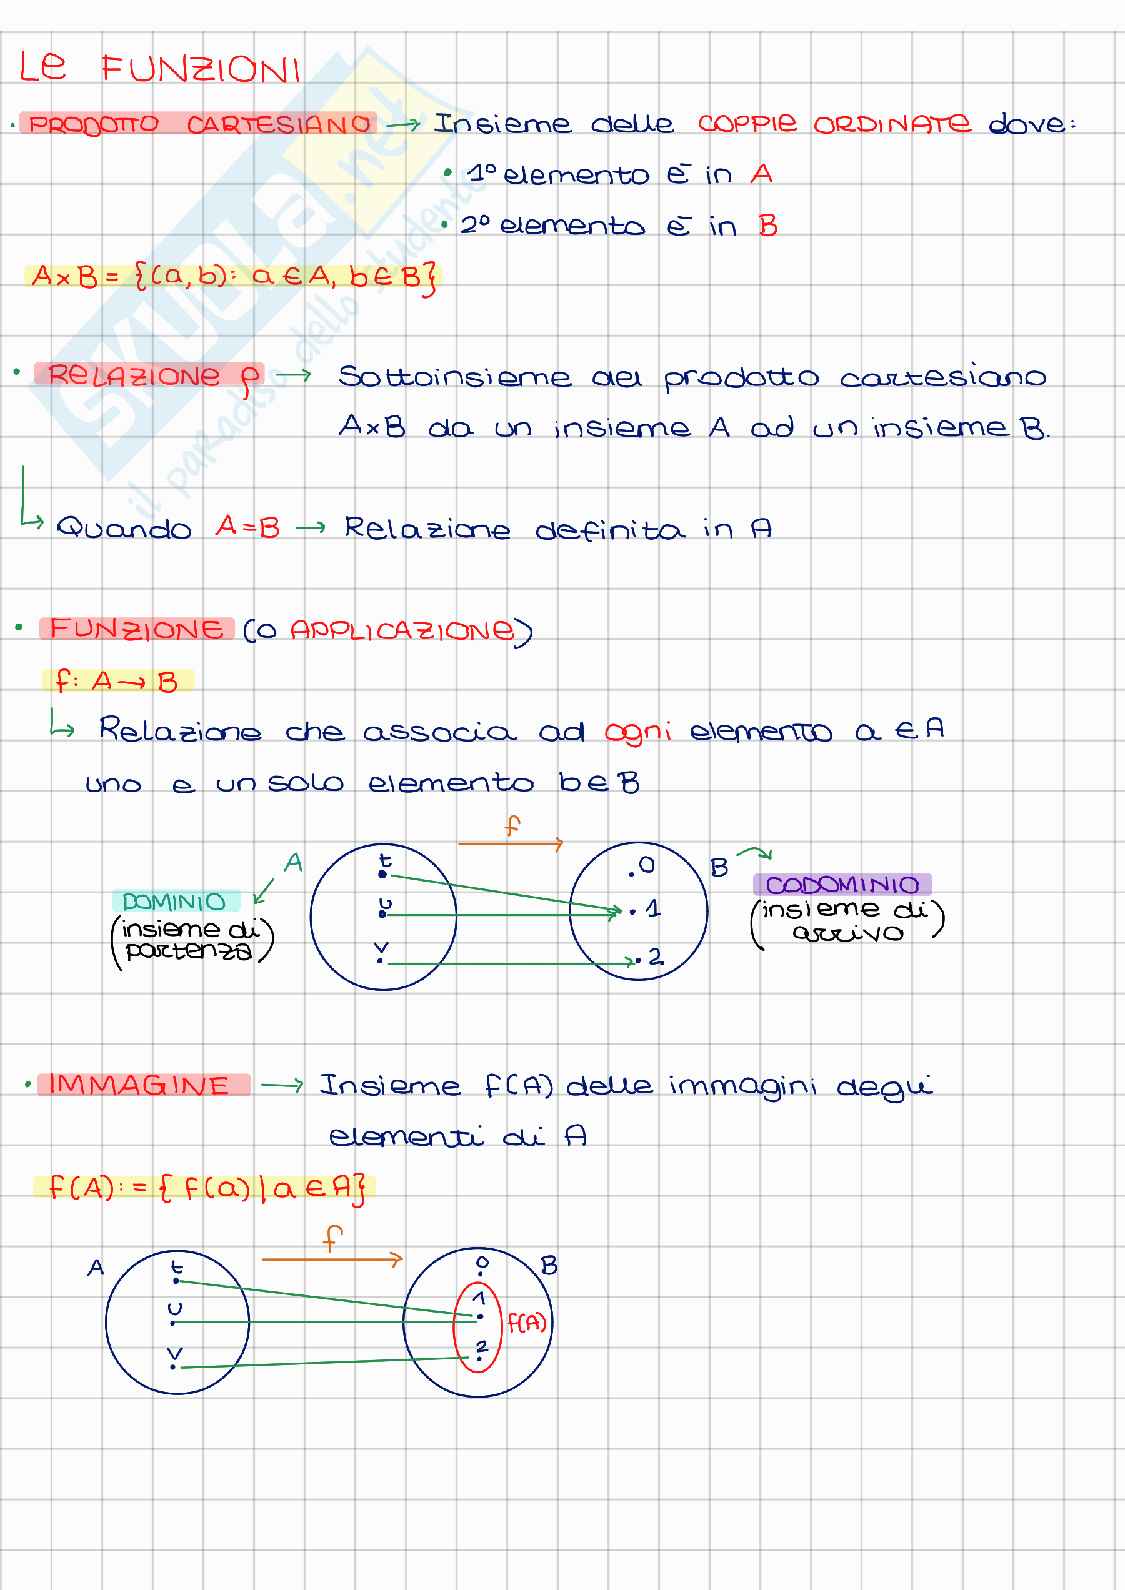 Le FUNZIONI
• PRODOTTO CARTESIANO → Insieme delle COPPIE ORDINATE dove:
• 1° elemento è in A
• 2° elemento è in B
A×B = {(a,b): a ∈ A, b ∈ B}
• RELAZIONE ρ → Sottoinsieme del prodotto cartesiano
A×B da un insieme A ad un insieme B.
↳ Quando A=B → Relazione definita in A
• FUNZIONE (o APPLICAZIONE)
f: A → B
↳ Relazione che associa ad ogni elemento a ∈ A
uno e un solo elemento b ∈ B
f
A t 0 B
DOMINIO CODOMINIO
u 1
(insieme di partenza) (insieme di arrivo)
v 2
• IMMAGINE → Insieme f(A) delle immagini degli
elementi di A
f(A) := { f(a) | a ∈ A}
f
A t 0 B
u 1 f(A)
v 2
SKUOLA.net
il paradiso dello studente